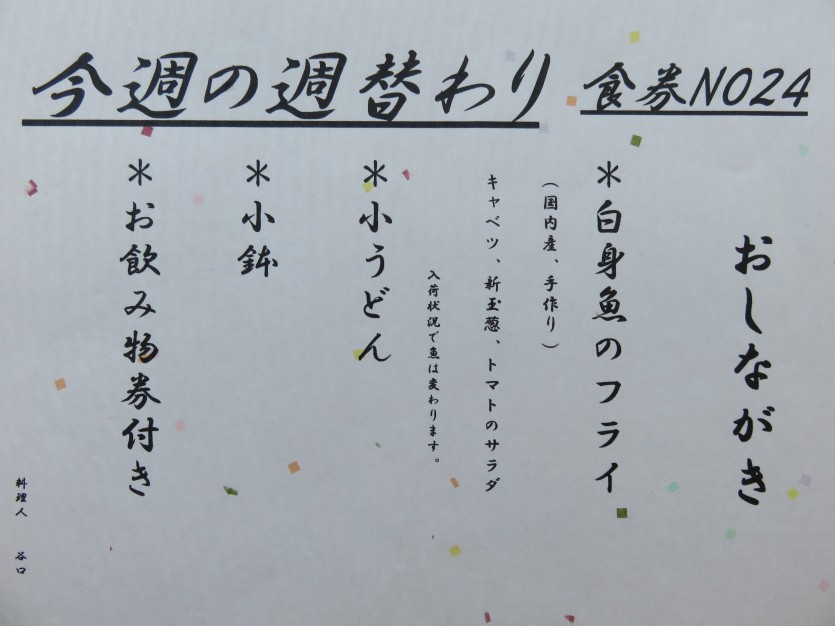 今週の週替わり
食券NO24
おしながき
＊白身魚のフライ
（国内産、手作り）
キャベツ、新玉葱、トマトのサラダ
入荷状況で魚は変わります。
＊小うどん
＊小鉢
＊お飲み物券付き
料理人　谷口